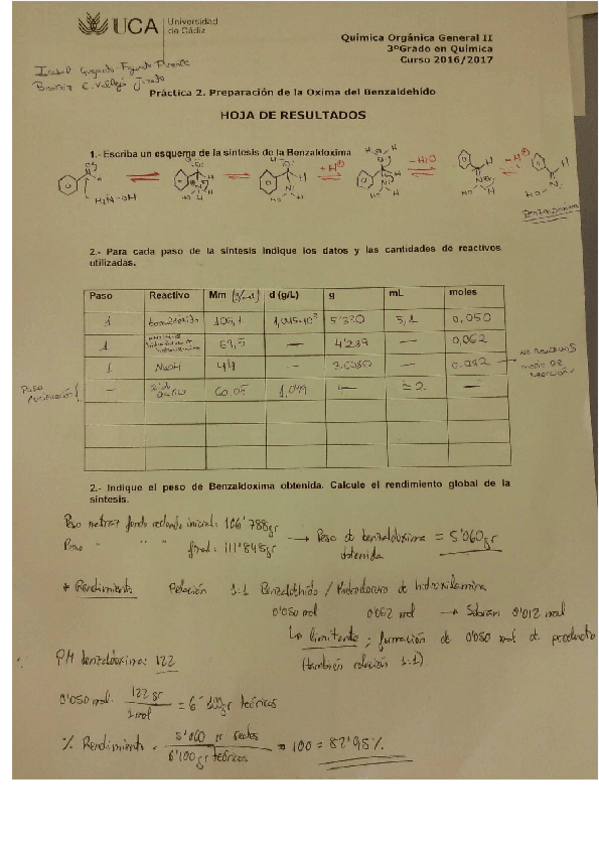 UCA Universidad de Cádiz
Química Orgánica General II
3ºGrado en Química
Curso 2016/2017
Práctica 2. Preparación de la Oxima del Benzaldehído
HOJA DE RESULTADOS
1.- Escriba un esquema de la síntesis de la Benzaldoxima
+H⊕ -H2O -H⊕
Benzaldoxima
2.- Para cada paso de la síntesis indique los datos y las cantidades de reactivos
utilizadas.
Paso Reactivo Mm d (g/L) g mL moles
1 1,045·10³ 5'330 5,1 0,050
1 69,5 — 4'289 — 0,062
1 NaOH —
— 60,05 1,049 — ≈2 —
2.- Indique el peso de Benzaldoxima obtenida. Calcule el rendimiento global de la
síntesis.
Peso matraz fondo redondo inicial: 106'788gr
Peso " " " final: 111'848gr → Peso de benzaldoxima = 5'060gr
obtenida
* Rendimiento Relación 1:1 Benzaldehído / Hidrocloruro de hidroxilamina
0'050 mol 0'062 mol → Sobran 0'012 mol
La limitante; formación de 0'050 mol de producto
(también relación 1:1)
PM benzaldoxima: 122
0'050 mol · 122 gr / 1 mol = 6'100gr teóricos
% Rendimiento = 5'060 gr reales / 6'100 gr teóricos · 100 = 82'95%